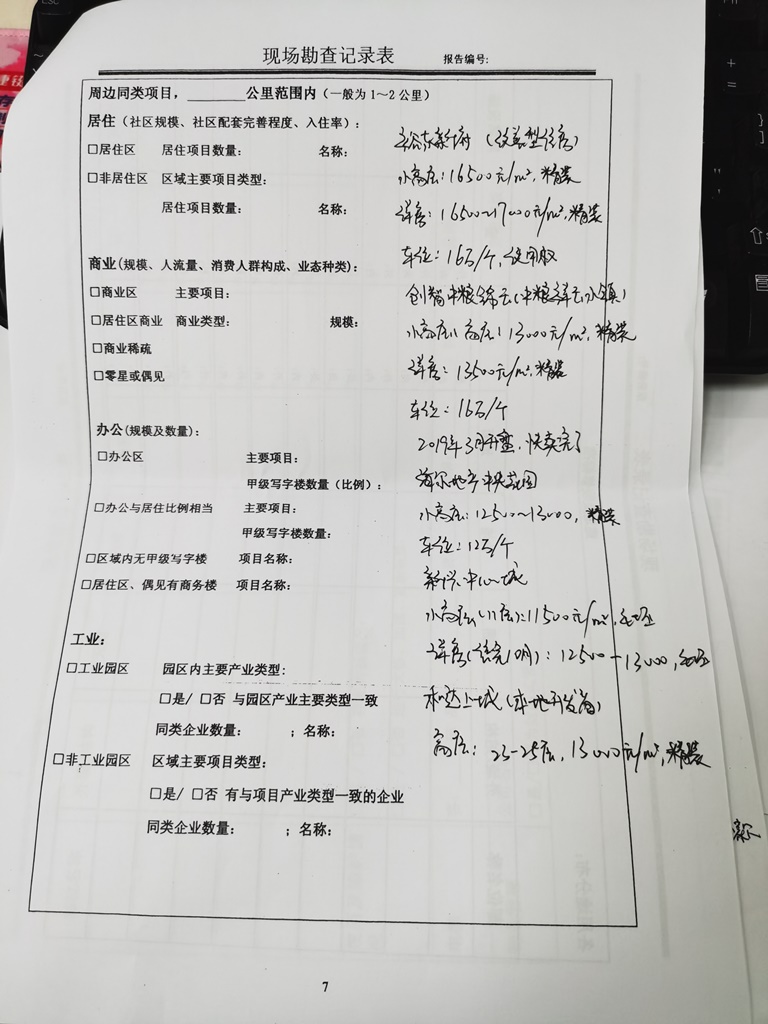 现场勘查记录表 报告编号:
周边同类项目，______公里范围内（一般为1～2公里）
居住（社区规模、社区配套完善程度、入住率）:
（改善型住房）
□居住区 居住项目数量: 名称:
小高层：16500元/m²，精装
□非居住区 区域主要项目类型:
居住项目数量: 名称:
洋房：16500~17000元/m²，精装
车位：16万/个，使用权
商业(规模、人流量、消费人群构成、业态种类):
□商业区 主要项目:
创智中粮锦云(中粮祥云小镇)
□居住区商业 商业类型: 规模:
小高层、高层：13000元/m²，精装
□商业稀疏
洋房：13500元/m²，精装
□零星或偶见
车位：16万/个
办公(规模及数量):
2019年3月开盘，快卖完了
□办公区 主要项目:
甲级写字楼数量（比例）:
海尔地产中央花园
□办公与居住比例相当 主要项目:
小高层：12500~13000，精装
甲级写字楼数量:
车位：12万/个
□区域内无甲级写字楼 项目名称:
□居住区、偶见有商务楼 项目名称:
中心城
小高层(11层)：11500元/m²，毛坯
工业:
洋房 ：12500-13000，毛坯
□工业园区 园区内主要产业类型:
□是/ □否 与园区产业主要类型一致
和达上城(本地开发商)
同类企业数量: ；名称:
高层：23-25层，13000元/m²，精装
□非工业园区 区域主要项目类型:
□是/ □否 有与项目产业类型一致的企业
同类企业数量: ；名称:
7